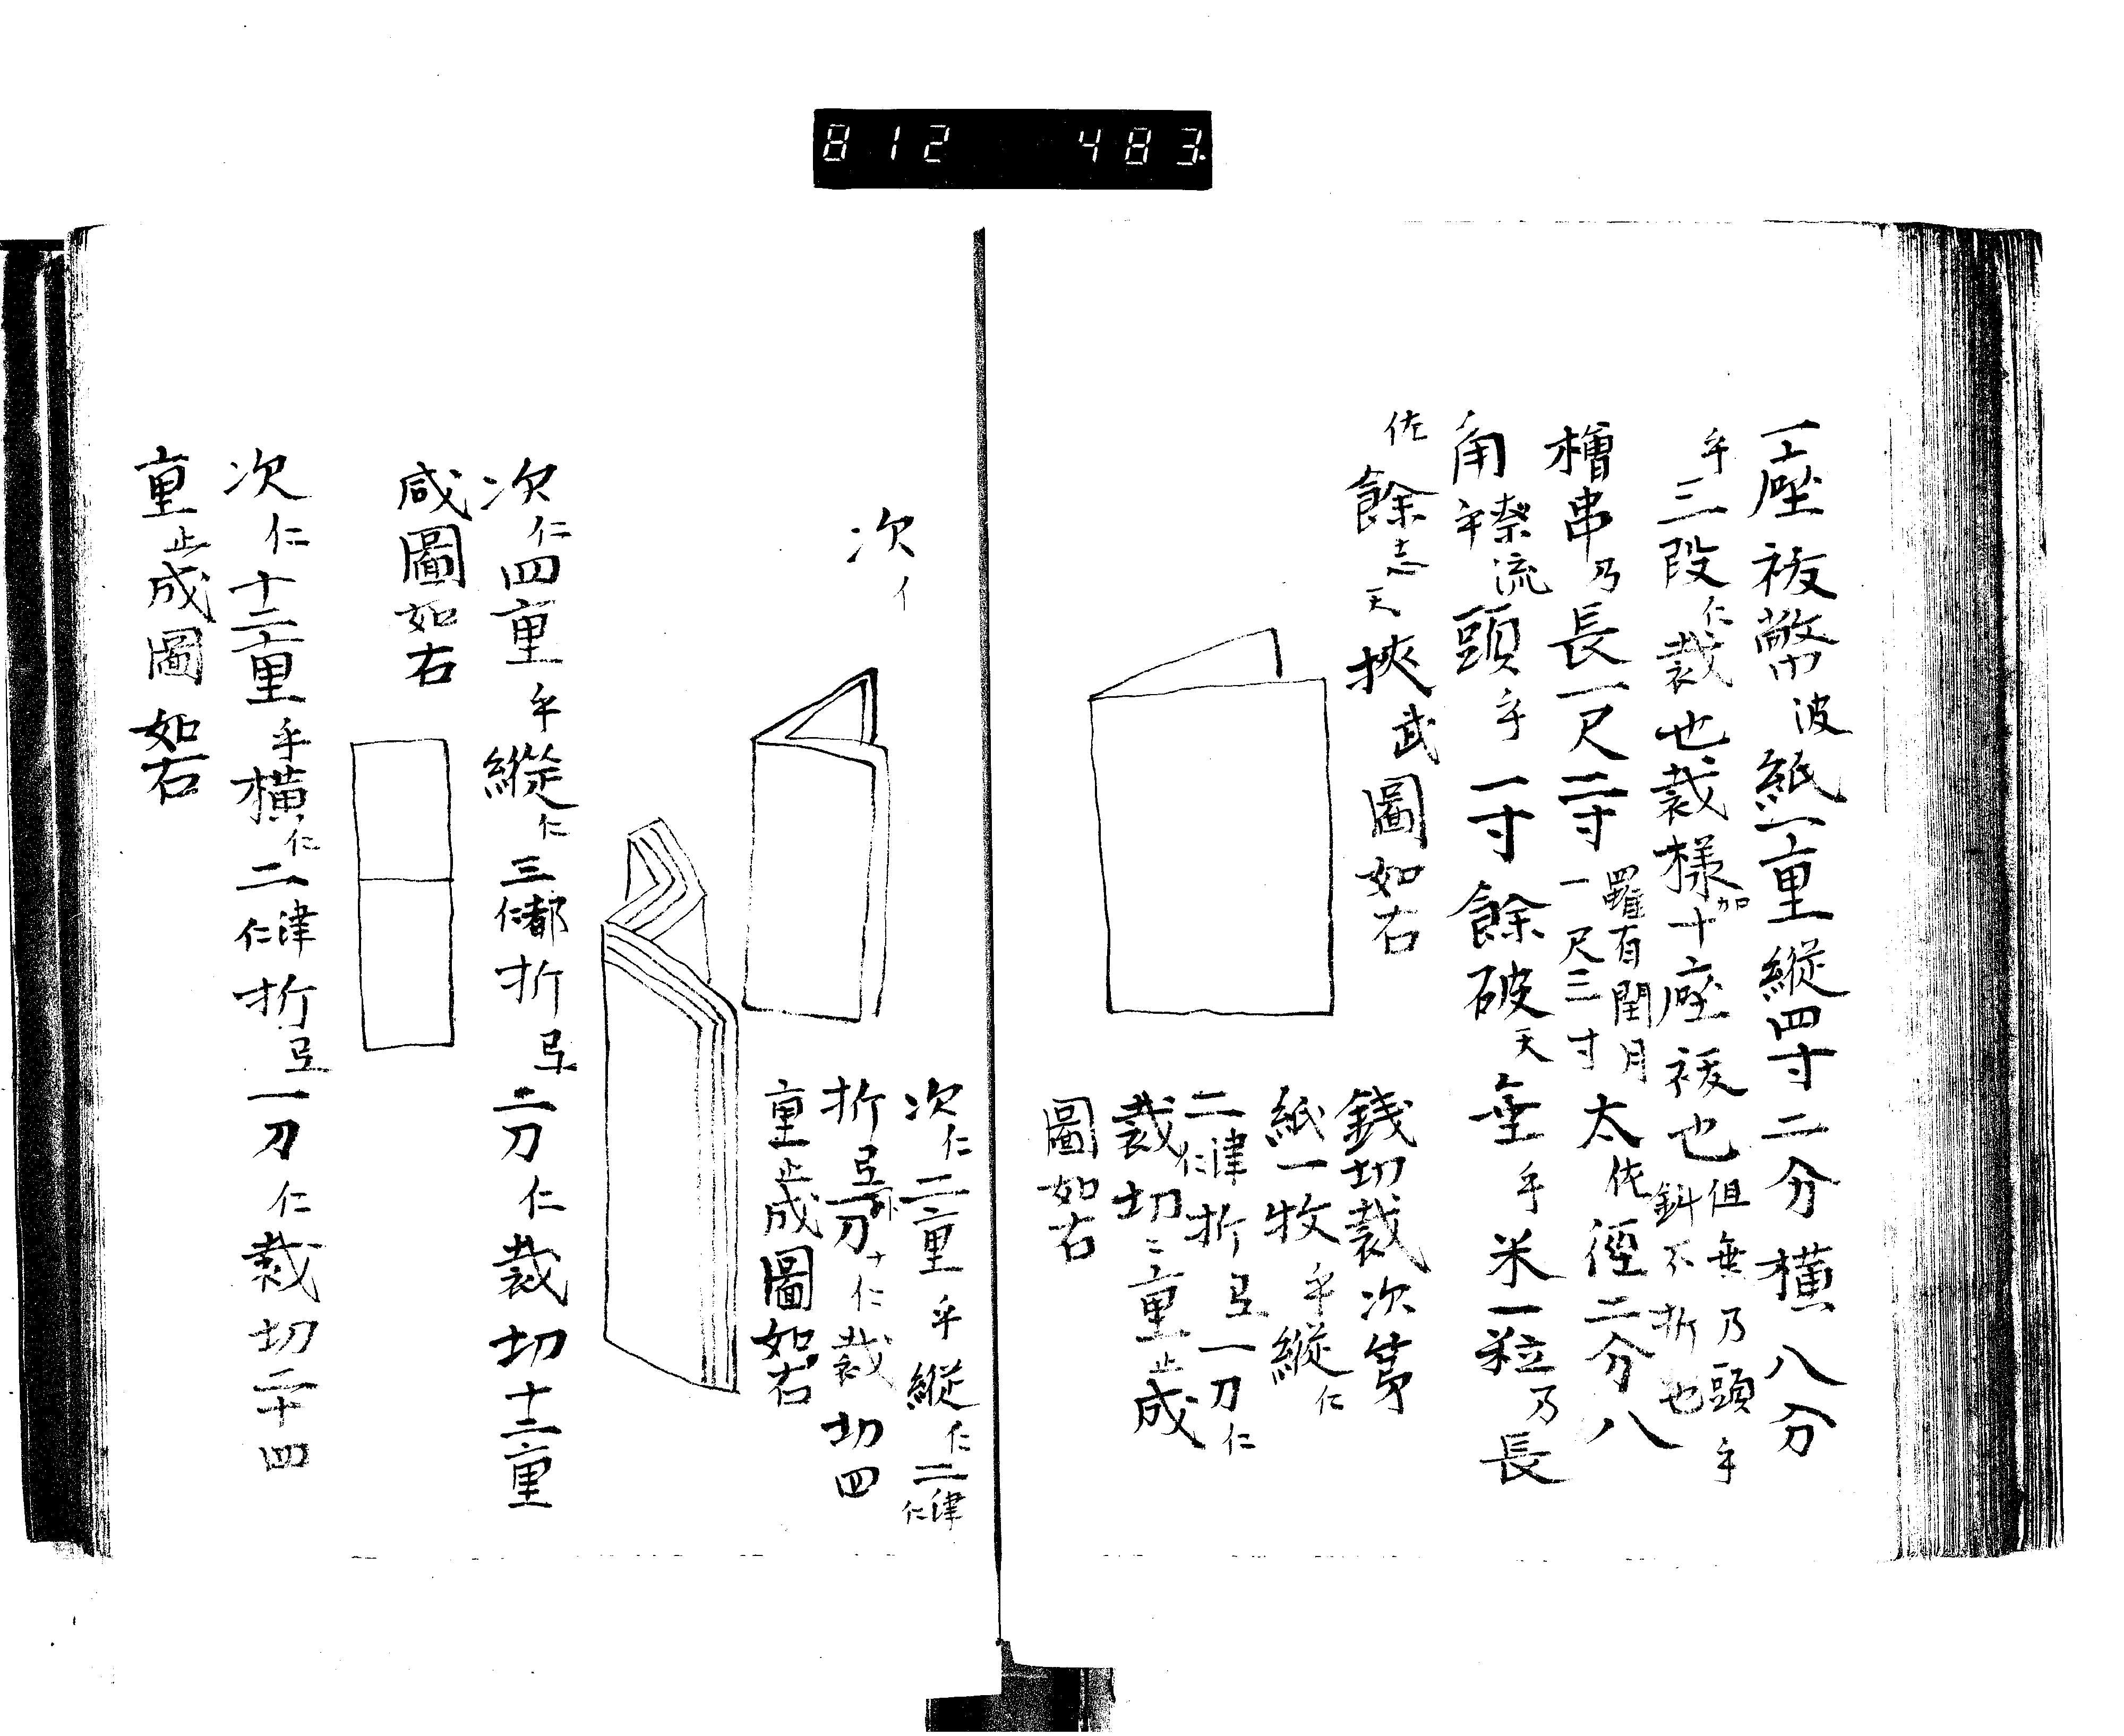 812 483
一座祓幣波紙一重縦四寸二分横八分
乎三段仁裁也裁様加十座祓也但垂乃頭乎
斜不折也
檜串乃長一尺二寸雖有閏月
一尺三寸太佐径二分八
角乎襟流頭乎一寸餘破天垂乎米一粒乃長
佐餘志天挾武圖如右
錢切裁次第
紙一枚乎縦仁
二津仁折弖一刀仁
裁切二重止成
圖如右
次
次仁二重乎縦仁二津仁
折弖一刀仁裁切四
重止成圖如右
次仁四重乎縦仁三都仁折弖二刀仁裁切十二重
成圖如右
次仁十二重乎横仁二津仁折弖一刀仁裁切二十四
重止成圖如右